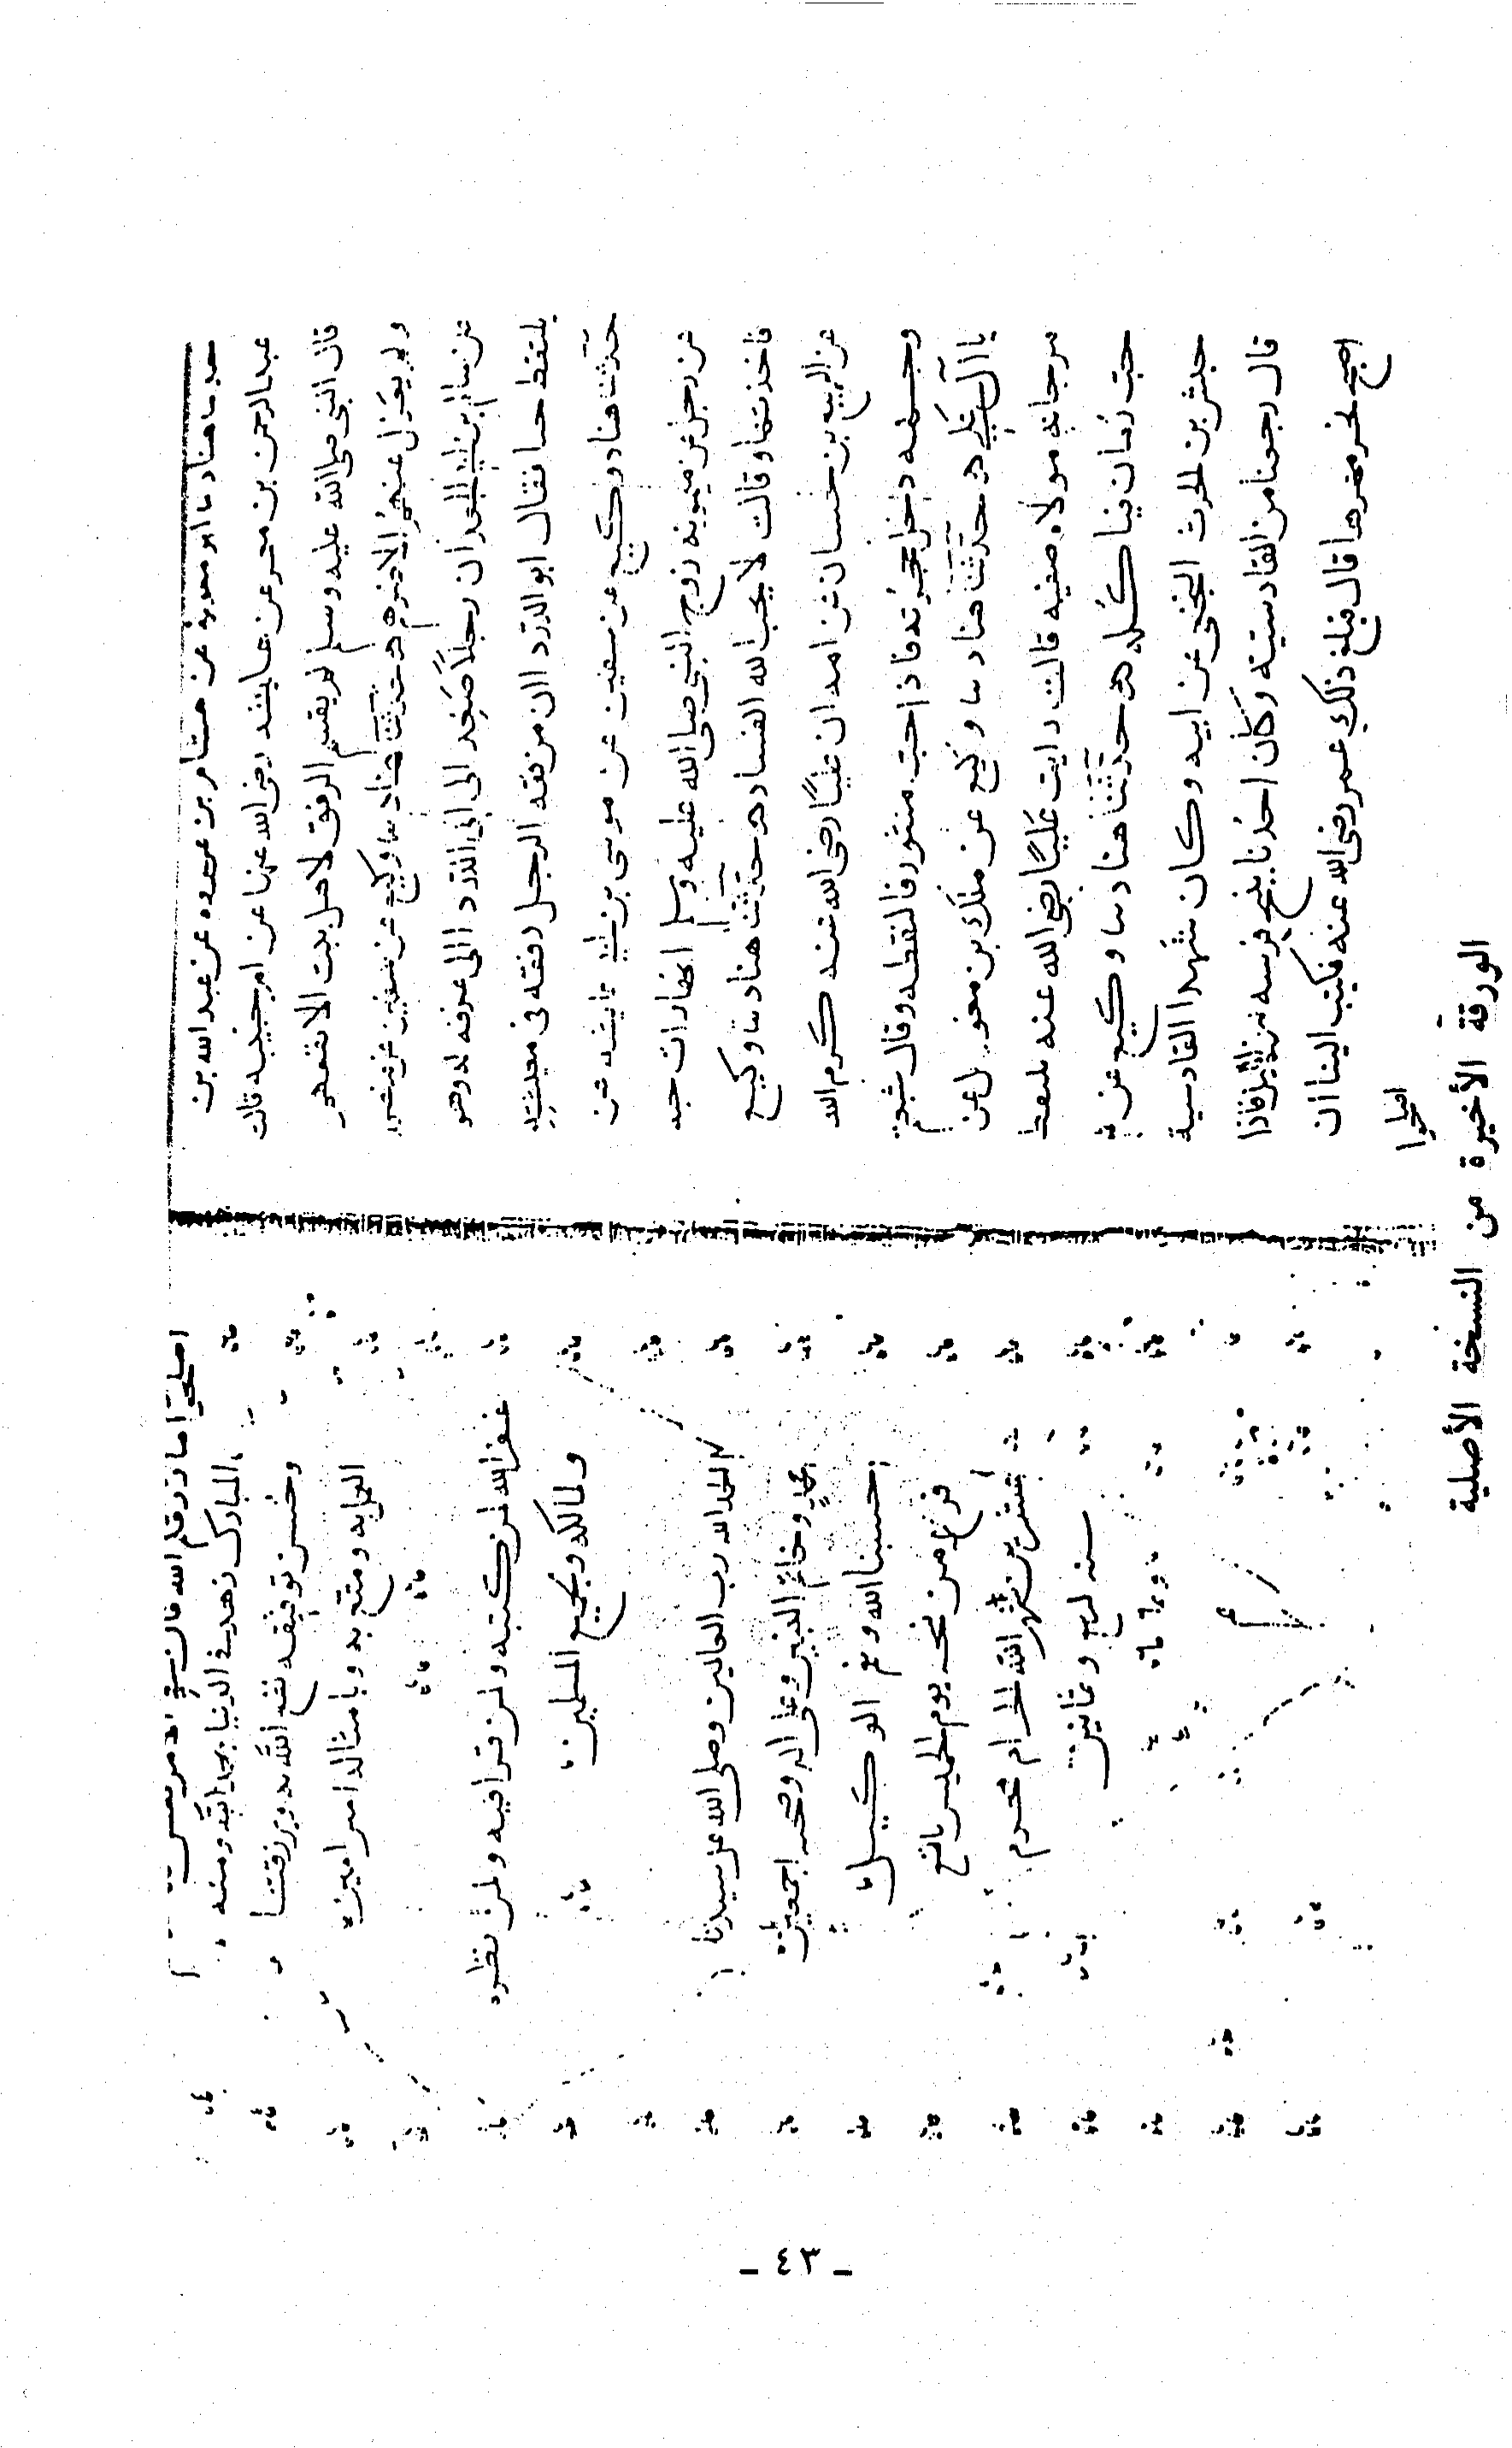 حدثنا هناد ثنا ابو معوية عن هشام بن عروه عن عبد الله بن
عبد الرحمن بن معمر عن عايشه رضي الله عنها عن ام حبيبه قالت
قال النبي صلى الله عليه وسلم لم يقسم الرفق لاهل بيت الا نفعهم
ولم يعزل عنهم الا ضرهم ه حدثنا هناد ثنا وكيع عن سفين عن منصور
عن سالم بن ابي الجعد ان رجلاً صعد الى ابي الدرداء الى غرفه له وهو
يلتقط حبا فقال ابو الدرداء ان من فقه الرجل رفقه في معيشته
حدثنا هناد وكيع عن سفين عن موسى بن ابي عايشه عن
عن رجل عن ميمونه زوج النبي صلى الله عليه وسلم انها رات حبه
فاخذتها وقالت لا يحب الله الفساد ه حدثنا هناد ثنا وكيع
عن الربيع بن حسان عن امه ان عليًا رضي الله عنه كرم الله
وجهه دخل حجرته فاذا حب منثور فالتقطه وقال شبعتم
يا آل علي ه حدثنا هناد ثنا وكيع عن ملك بن مغول عن
مرجانه مولاه صفيه قالت رايت عليًا رضي الله عنه يلتقط
حب رمان فياكله ه حدثنا هناد ثنا وكيع عن
حنش بن الحرث النخعي عن ابيه وكان شهد القادسية
قال رجعنا من القادسيه وكان احدنا ينتج فرسه من الليل فاذا
اصبح نحر مهرها قال فبلغ ذلك عمر رضي الله عنه فكتب الينا ان
اصلحوا
اصلحوا ما رزقكم الله فان في الامر
المبارك زهد في الدنيا بحمد الله ومنه
وحسن توفيقه نفع الله به ويرزقنا
العمل به ومتع به وبامثاله امين امين
غفر الله لمن كتبه ولمن قرا فيه ولمن نظره
ولمالكه وجميع المسلمين
الحمد لله رب العالمين وصلى الله على سيدنا
محمد وخاتم النبيين وعلى اله وصحبه اجمعين
حسبنا الله ونعم الوكيل
فرغ من نسخه يوم الخميس تاسع
عشرين شهر الله الحرام محرم
سنه اربع وثمانين
الورقة الأخيرة من النسخة الأصلية
- ٤٣ -